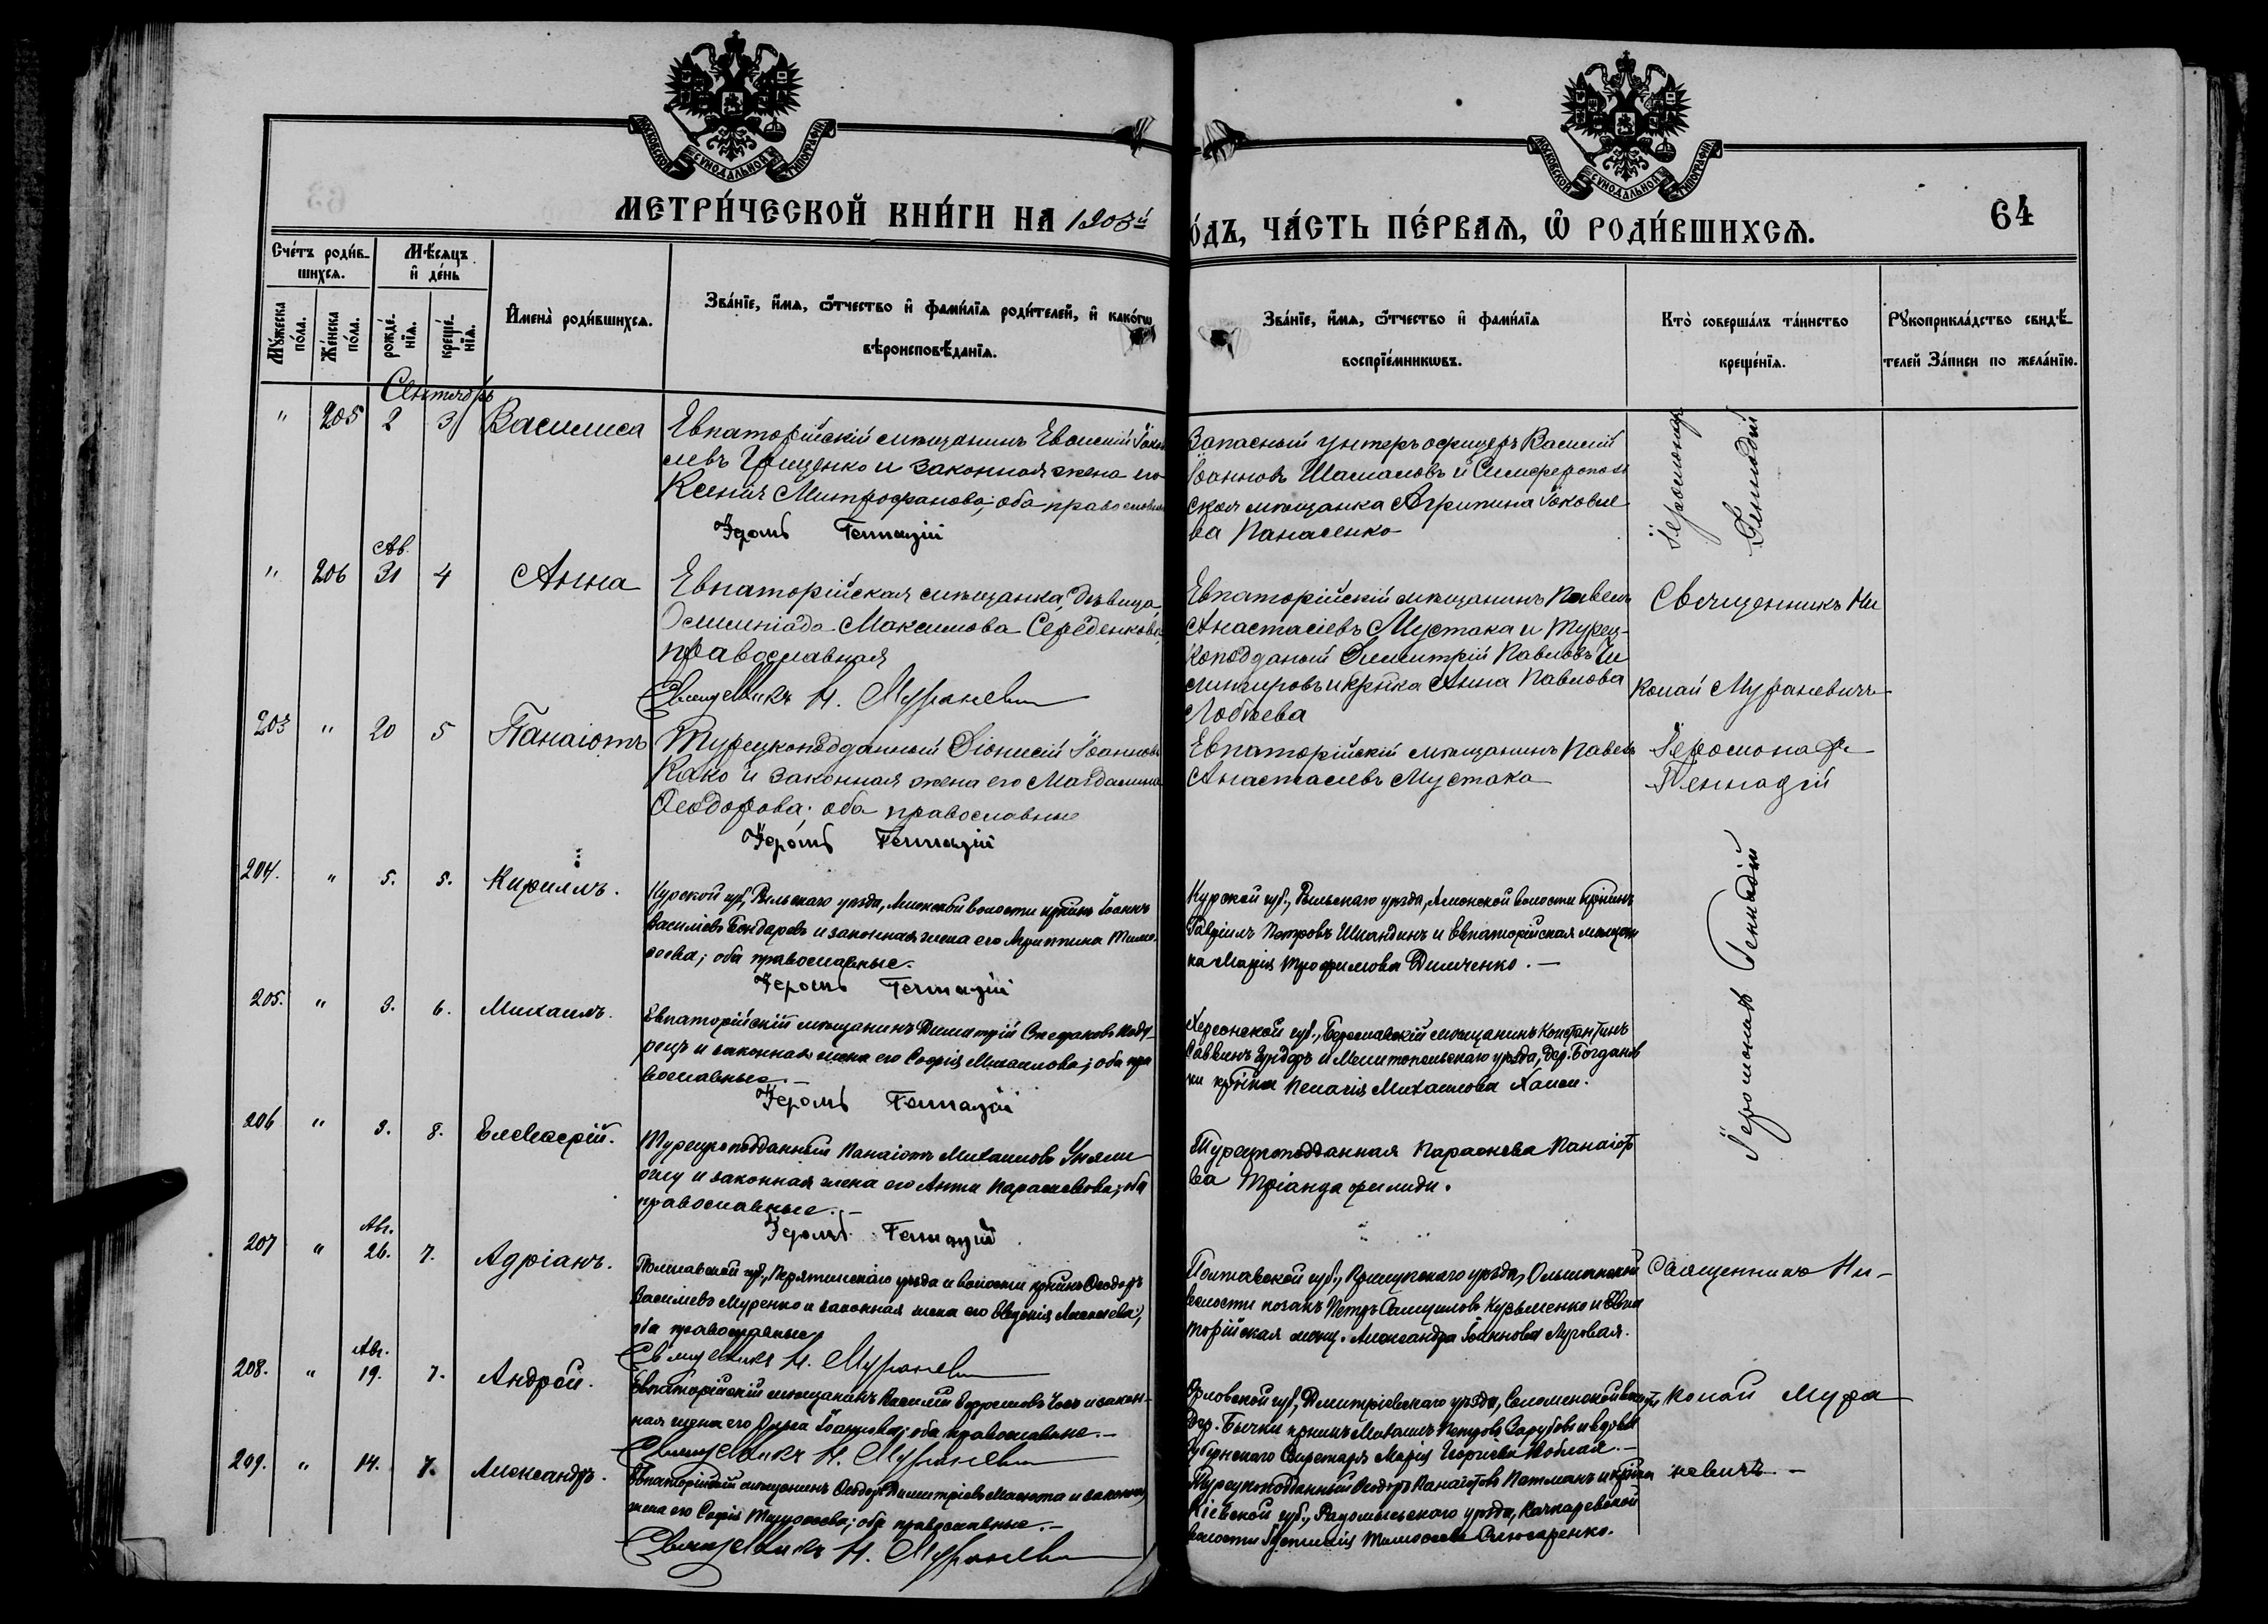 МОСКОВСКОЙ СѴНОДАЛЬНОЙ ТИПОГРАФІИ
МОСКОВСКОЙ СѴНОДАЛЬНОЙ ТИПОГРАФІИ
МЕТРИ́ЧЕСКОЙ КНИ́ГИ НА 1903й
О́ДЪ, ЧА́СТЬ ПЕ́РВАѦ, Ѡ҆ РОДИ́ВШИХСѦ.
64
Сче́тъ роди́в-
шихсѧ.
Мѣ́сѧцъ
и҆ де́нь
Мꙋ́жеска по́ла.
Же́нска по́ла.
рожде́-
нїѧ.
креще́-
нїѧ.
И҆мена̀ роди́вшихсѧ.
Зва́нїе, и҆́мѧ, ѻ҆́тчество и҆ фами́лїѧ роди́телей, и҆ како́гѡ
вѣроисповѣ́данїѧ.
Зва́нїе, и҆́мѧ, ѻ҆́тчество и҆ фами́лїѧ
воспрїе́мникѡвъ.
Кто̀ соверша́лъ та́инство
креще́нїѧ.
Рꙋкоприкла́дство свидѣ́-
телей За́писи по жела́нїю.
Сентябрь
" 205 2 3 Василиса
Евпаторійскій мѣщанинъ Іаков
левъ Грищенко и законная жена его
Ксенія Митрофанова; оба православн
Іером Геннадій
Запасный унтеръ офицеръ Василій
Іоанновъ Шаталовъ и Симферополь
ская мѣщанка Агрипина Іаковле
ва Панасенко
Іеромонах
Геннадій
Ав.
" 206 31 4 Анна
Евпаторійская мѣщанка, дѣвица,
Максимова Середенкова,
православная
Священникъ Н. Мураневич
Евпаторійскій мѣщанинъ Павелъ
Анастасіевъ Мустака и турец-
коподданый Димитрій Павловъ
и кр-нка Анна Павлова
Священникъ Ни
колай Мураневичъ
203 " 20 5 Панаіотъ
Турецкоподданный Діонисій Іоанновъ
Како и законная жена его Магдалина
Ѳеодорова; оба православные
Іером Геннадій
Евпаторійскій мѣщанинъ Павелъ
Анастасіевъ Мустака
Іеромонах
Геннадій
204. " 5. 5. Кириллъ.
Курской губ., Рыльскаго уѣзда, волости кр-нинъ Іоаннъ
Василіевъ Бондаревъ и законная жена его Агриппина Тимо-
ѳеева; оба православные.
Іером Геннадій
Курской губ., Рыльскаго уѣзда, волости кр-нинъ
Гавріилъ Петровъ и евпаторійская мѣщан
ка Марія Трофимова Димченко. —
Іеромонах Геннадій
205. " 3. 6. Михаилъ.
Евпаторійскій мѣщанинъ Димитрій Стефановъ
и законная жена его Софія Михаилова; оба пра
вославные. —
Іером Геннадій
Херсонской губ., Бериславскій мѣщанинъ Константинъ
Саввинъ и Мелитопольскаго уѣзда, дер. Богданов
ки кр-нка Пелагія Михаилова
206 " 3. 8. Елевѳерій.
Турецкоподданный Панаіотъ Михаиловъ
и законная жена его Анна Параскевова; оба
православные. —
Іером Геннадій
Турецкоподданная Параскева Панаіото
ва Тріандафилиди.
Авг.
207 " 26. 7. Адріанъ.
Полтавской губ., Пирятинскаго уѣзда и волости кр-нинъ Ѳеодоръ
Василіевъ Муренко и законная жена его Евдокія Алексіева;
оба православные
Священникъ Н. Мураневич
Полтавской губ., Прилукскаго уѣзда, Ольшанской
волости козакъ Петръ Самуиловъ Кузьменко и Евпа
торійская мѣщ. Александра Іоаннова Луговая.
Священникъ Ни-
Авг.
208. " 19. 7. Андрей.
Евпаторійскій мѣщанинъ Василій Ефремовъ и закон-
ная жена его Ольга Іоаннова; оба православные. —
Священникъ Н. Мураневич
Орловской губ., Дмитріевскаго уѣзда,
дер. Бычки кр-нинъ Михаилъ Петровъ и вдова
Губернскаго Секретаря Марія Георгіева —
колай Мура
209. " 14. 7. Александръ.
Евпаторійскій мѣщанинъ Ѳеодоръ Димитріевъ и законная
жена его Софія Тимоѳеева; оба православные. —
Священникъ Н. Мураневич
Турецкоподданный Ѳеодоръ Панаіотовъ и кр-нка
Кіевской губ., Радомысльскаго уѣзда,
волости Тимоѳеева Слюсаренко.
невичъ —